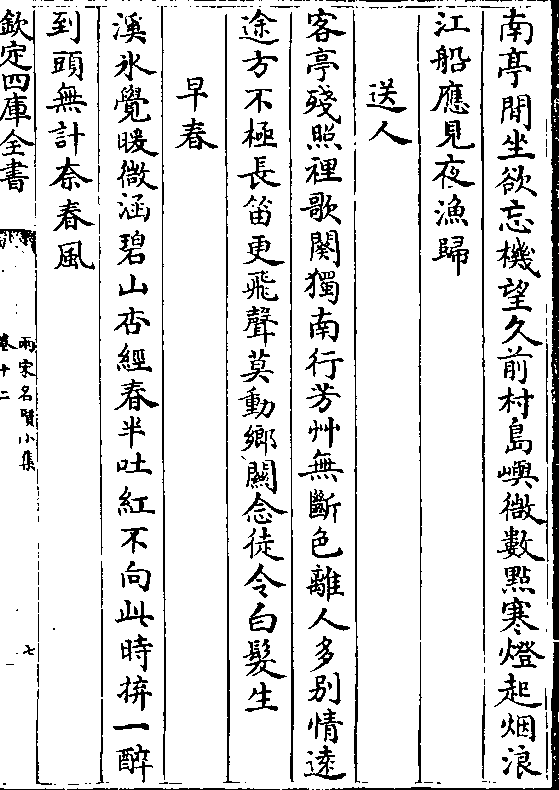 南亭閒坐欲忘機望久前村島嶼微數點寒燈起烟浪
江船應見夜漁歸
送人
客亭殘照裡歌闋獨南行芳艸無斷色離人多别情逺
途方不極長笛更飛聲莫動鄉闗念徒令白髮生
早春
溪氷覺暖微涵碧山杏經春半吐紅不向此時拚一醉
到頭無計奈春風
欽定四庫全書
兩宋名賢小集
卷十二
七